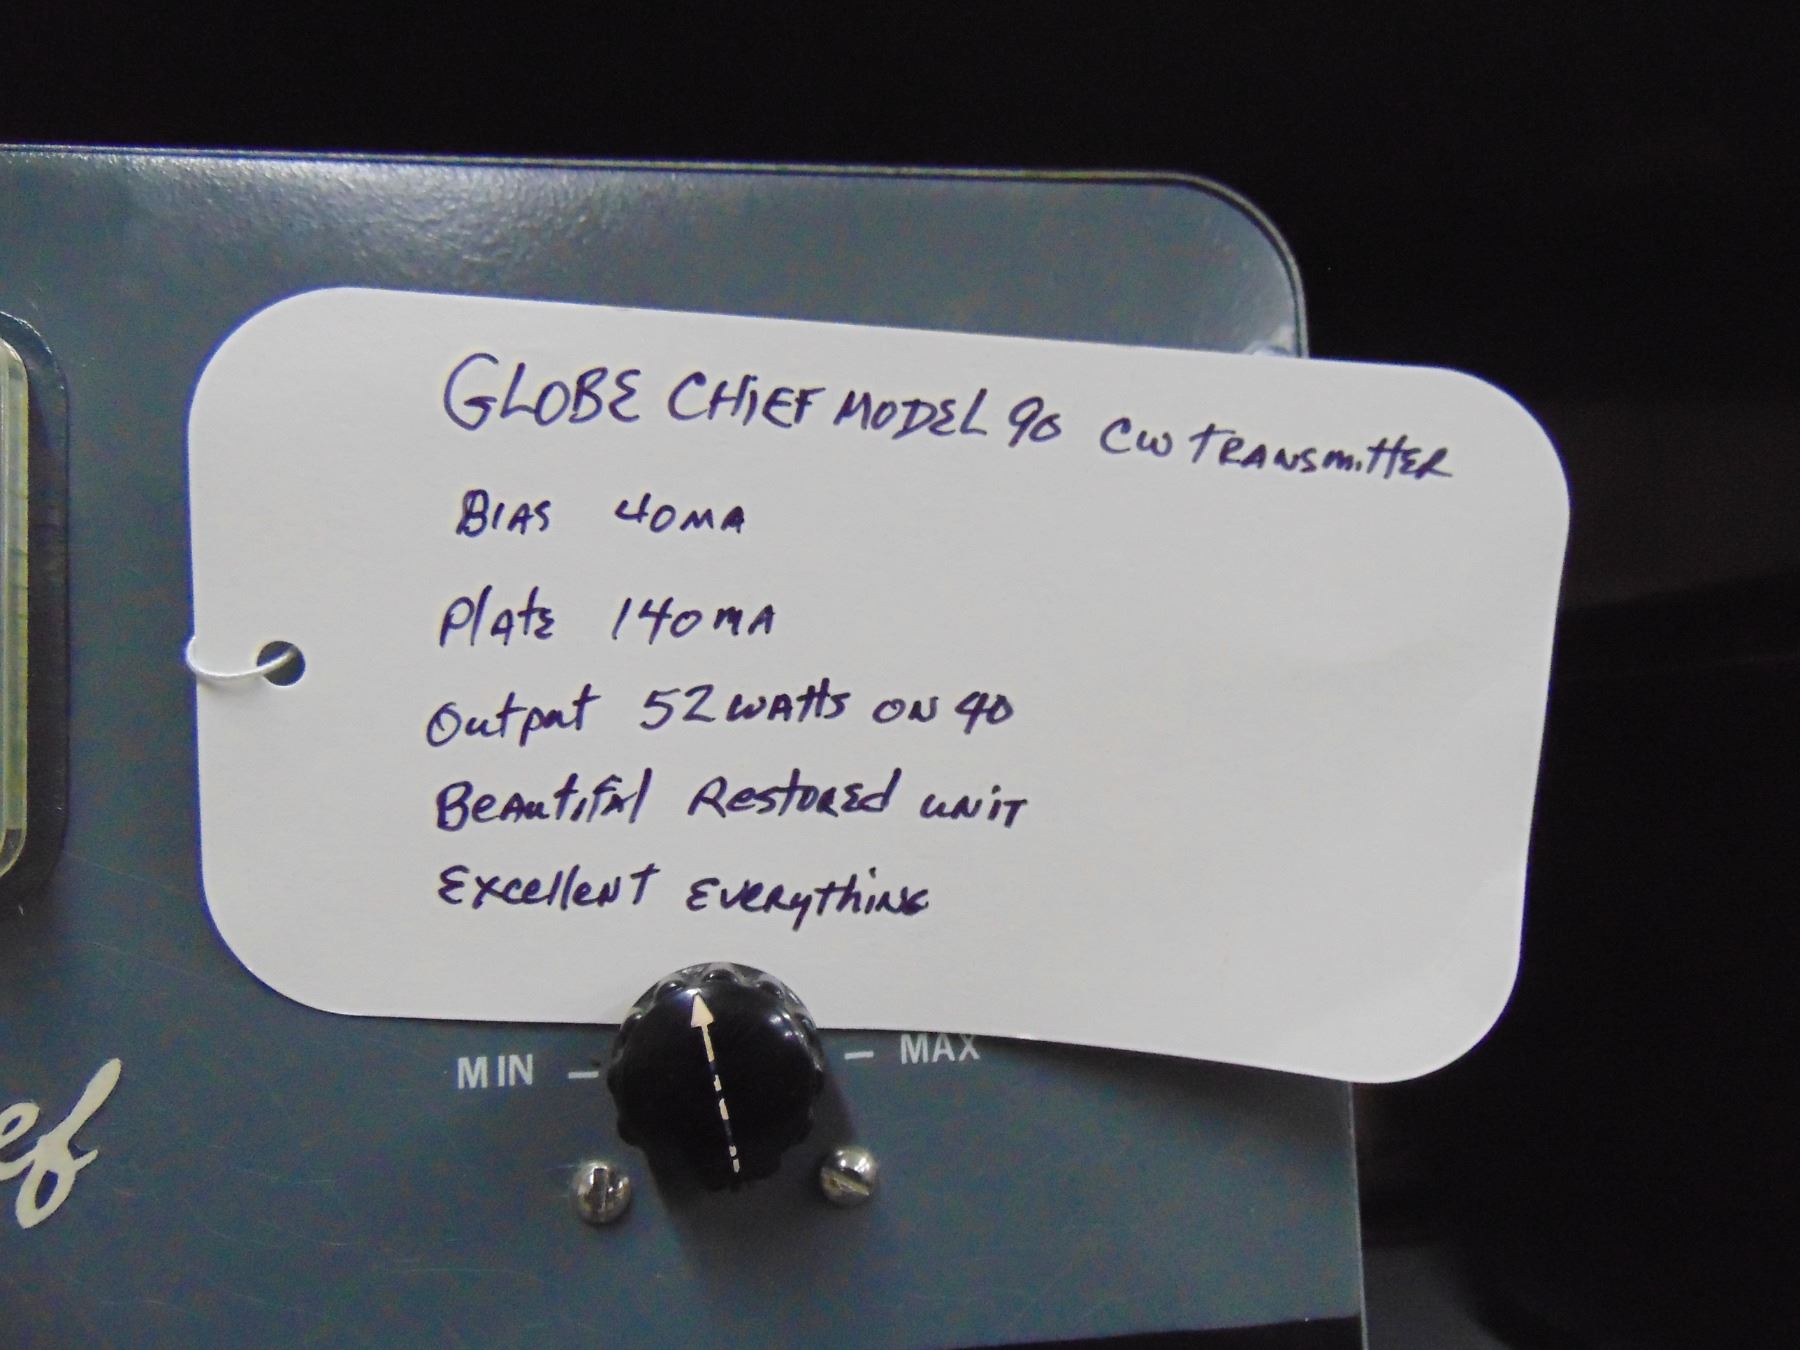 GLOBE CHIEF MODEL 90 CW TRANSMITTER
BIAS 40MA
Plate 140MA
Output 52 WATTS ON 40
BEAUTIFUL RESTORED UNIT
EXCELLENT EVERYTHING
MIN MAX
ef